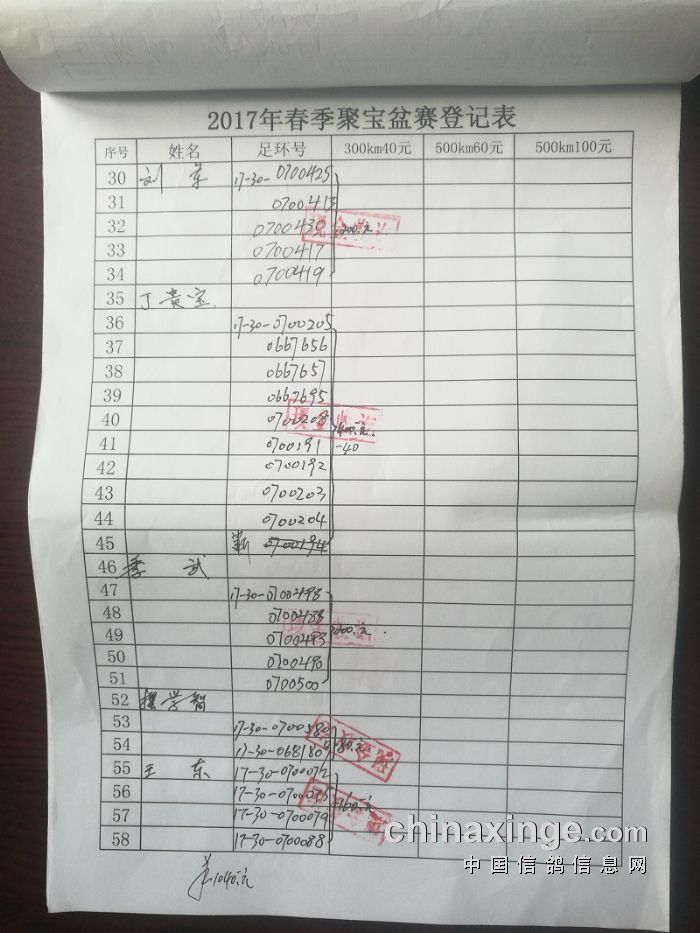 2017年春季聚宝盆赛登记表
序号 姓名 足环号 300km40元 500km60元 500km100元
30 刘 军 17-30-0700425
31 0700413
32 0700430 200元
33 0700417
34 0700419
35 丁贵宝
36 17-30-0700205
37 0667656
38 0667657
39 0667695
40 0700208 400元
41 0700191 -40
42 0700192
43 0700203
44 0700204
45 0700194
46 季 武
47 17-30-0700498
48 0700488
49 0700493 200元
50 0700490
51 0700500
52 学智
53 17-30-0700580
54 17-30-0681809 80元
55 王 东 17-30-0700072
56 17-30-0700075 160元
57 17-30-0700079
58 17-30-0700088
1040元
chinaxinge.com
中国信鸽信息网